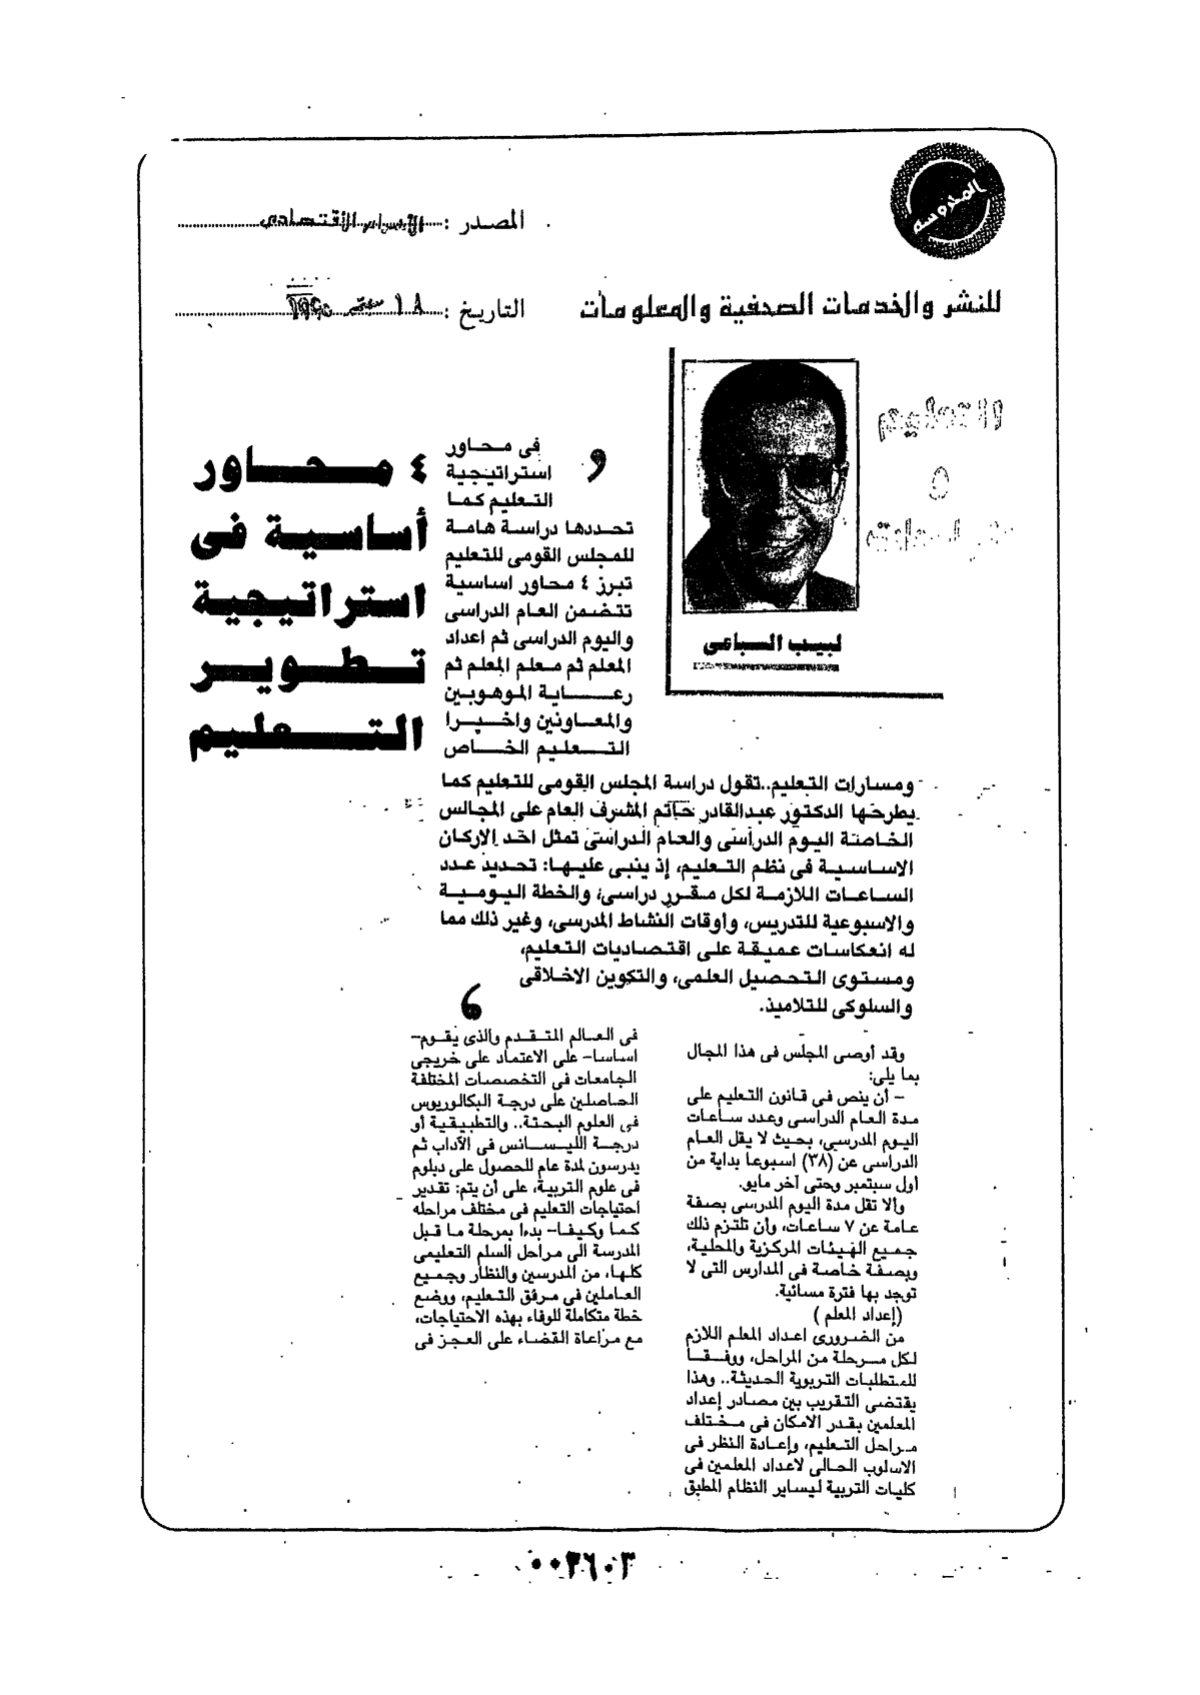 المدروسه
المصدر : الاهرام الاقتصادى
للنشر والخدمات الصحفية والمعلومات
التاريخ : ١٨ سبتمبر ١٩٩٥
والتعليم
لبيب السباعى
٤ محاور
أساسية فى
استراتيجية
تطوير
التعليم
فى محاور
استراتيجية
التعليم كما
تحددها دراسة هامة
للمجلس القومى للتعليم
تبرز ٤ محاور اساسية
تتضمن العام الدراسى
واليوم الدراسى ثم اعداد
المعلم ثم معلم المعلم ثم
رعاية الموهوبين
والمعاونين واخيرا
التعليم الخاص
ومسارات التعليم..تقول دراسة المجلس القومى للتعليم كما
يطرحها الدكتور عبدالقادر حاتم المشرف العام على المجالس
الخاصة اليوم الدراسى والعام الدراسى تمثل احد الاركان
الاساسية فى نظم التعليم، إذ ينبى عليها: تحديد عدد
الساعات اللازمة لكل مقرر دراسى، والخطة اليومية
والاسبوعية للتدريس، وأوقات النشاط المدرسى، وغير ذلك مما
له انعكاسات عميقة على اقتصاديات التعليم،
ومستوى التحصيل العلمى، والتكوين الاخلاقى
والسلوكى للتلاميذ.
وقد أوصى المجلس فى هذا المجال
بما يلى:
– أن ينص فى قانون التعليم على
مدة العام الدراسى وعدد ساعات
اليوم المدرسي، بحيث لا يقل العام
الدراسى عن (٣٨) اسبوعا بداية من
أول سبتمبر وحتى آخر مايو.
وألا تقل مدة اليوم المدرسى بصفة
عامة عن ٧ ساعات، وأن تلتزم ذلك
جميع الهيئات المركزية والمحلية،
وبصفة خاصة فى المدارس التى لا
توجد بها فترة مسائية.
(إعداد المعلم )
من الضرورى اعداد المعلم اللازم
لكل مرحلة من المراحل، ووفقا
للمتطلبات التربوية الحديثة.. وهذا
يقتضى التقريب بين مصادر إعداد
المعلمين بقدر الامكان فى مختلف
مراحل التعليم، وإعادة النظر فى
الاسلوب الحالى لاعداد المعلمين فى
كليات التربية ليساير النظام المطبق
فى العالم المتقدم والذى يقوم–
اساسا– على الاعتماد على خريجى
الجامعات فى التخصصات المختلفة
الحاصلين على درجة البكالوريوس
فى العلوم البحتة.. والتطبيقية أو
درجة الليسانس فى الآداب ثم
يدرسون لمدة عام للحصول على دبلوم
فى علوم التربية، على أن يتم: تقدير
احتياجات التعليم فى مختلف مراحله
كما وكيفا– بدءا بمرحلة ما قبل
المدرسة الى مراحل السلم التعليمى
كلها، من المدرسين والنظار وجميع
العاملين فى مرفق التعليم، ووضع
خطة متكاملة للوفاء بهذه الاحتياجات،
مع مراعاة القضاء على العجز فى
٠٠٣٦٠٣